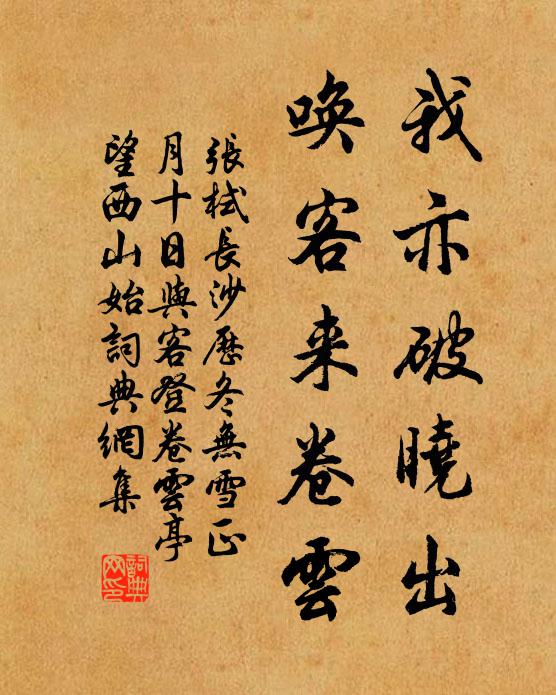 我亦破曉出
喚客来卷雲
張栻長沙歷冬無雪正
月十日與客登卷雲亭
望西山始詞典網集
詞典网印